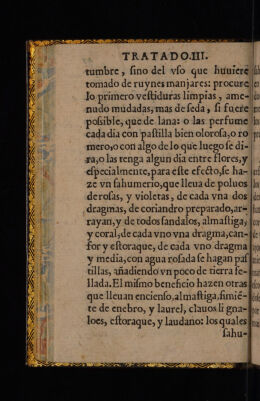 TRATADO.III.
tumbre, sino del vso que huuiere
tomado de ruynes manjares: procure
lo primero vestiduras limpias, ame-
nudo mudadas, mas de seda, si fuere
possible, que de lana: o las perfume
cada dia con pastilla bien olorosa, o ro
mero, o con algo de lo que luego se di-
ra, o las tenga algun dia entre flores, y
especialmente, para este efecto, se ha-
ze vn sahumerio, que lleua de poluos
de rosas, y violetas, de cada vna dos
dragmas, de coriandro preparado, ar-
rayan, y de todos sandalos, almastiga,
y coral, de cada vno vna dragma, can-
for y estoraque, de cada vno dragma
y media, con agua rosada se hagan pas
tillas, añadiendo vn poco de tierra se-
llada. El mismo beneficio hazen otras
que lleuan encienso, almastiga, simié-
te de enebro, y laurel, clauos lignа-
loes, estoraque, y laudano: los quales
sahu-